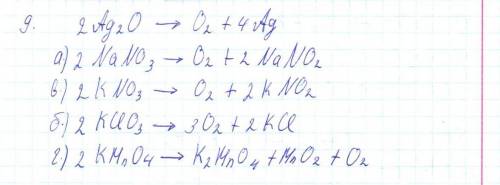 9. 2 Ag₂O → O₂ + 4Ag
а) 2 NaNO₃ → O₂ + 2 NaNO₂
в) 2 KNO₃ → O₂ + 2 KNO₂
б) 2 KClO₃ → 3O₂ + 2 KCl
г) 2 KMnO₄ → K₂MnO₄ + MnO₂ + O₂